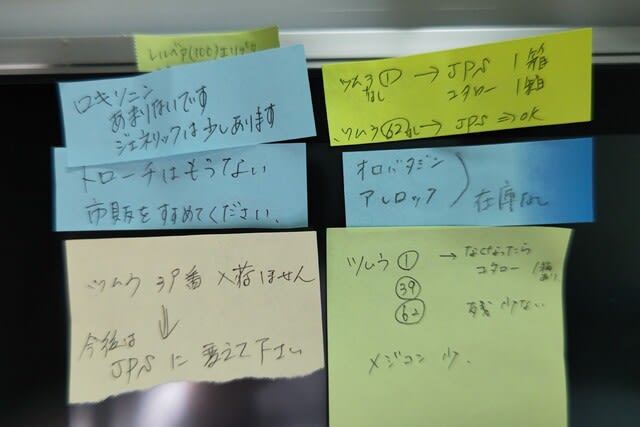 ロキソニン
あまりないです
ジェネリックは少しあります
トローチはもうない
市販をすすめてください.
ツムラ 39番 入荷ほせん
↓
今後は
JPS に 変えて下さい
ツムラ ① → JPS 1箱
なし コタロー 1箱
ツムラ 62 なし → JPS ⇒ OK
オロパタジン
アレロック
在庫なし
ツムラ ① → なくなったら
コタロー 1箱あり
39
62 残 少ない
メジコン 少.